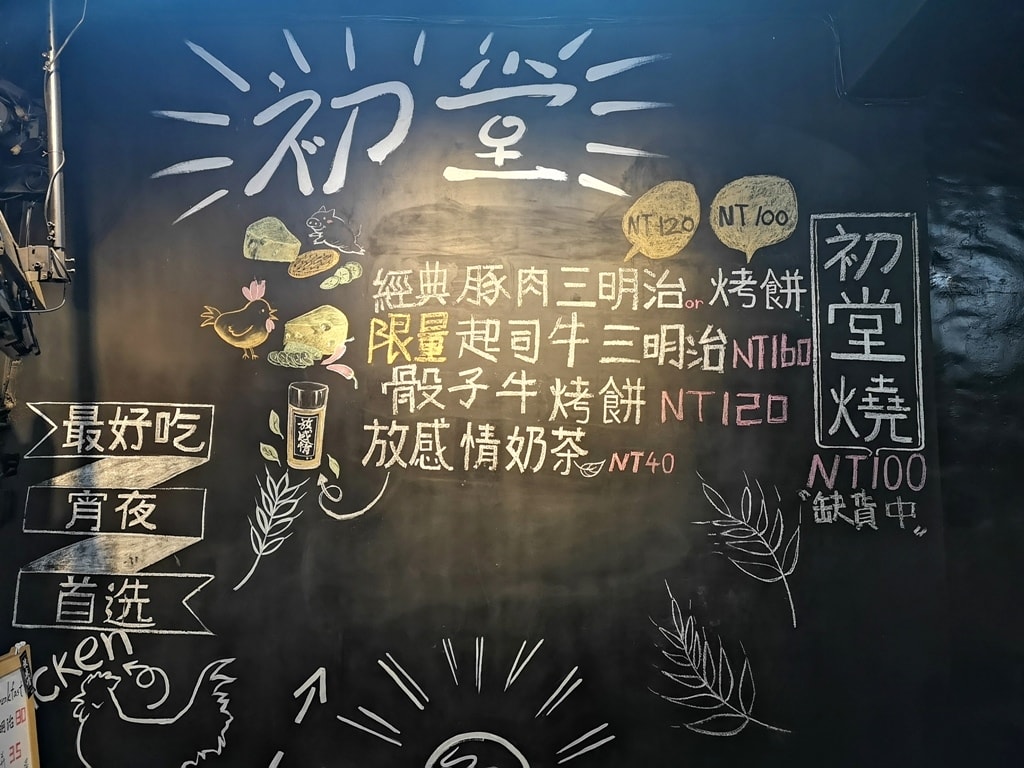 初堂
NT120 NT100
經典豚肉三明治or烤餅
限量起司牛三明治NT160
骰子牛烤餅NT120
放感情奶茶NT40
放感情
初堂燒
NT100
"缺貨中"
最好吃
宵夜
首选
cken